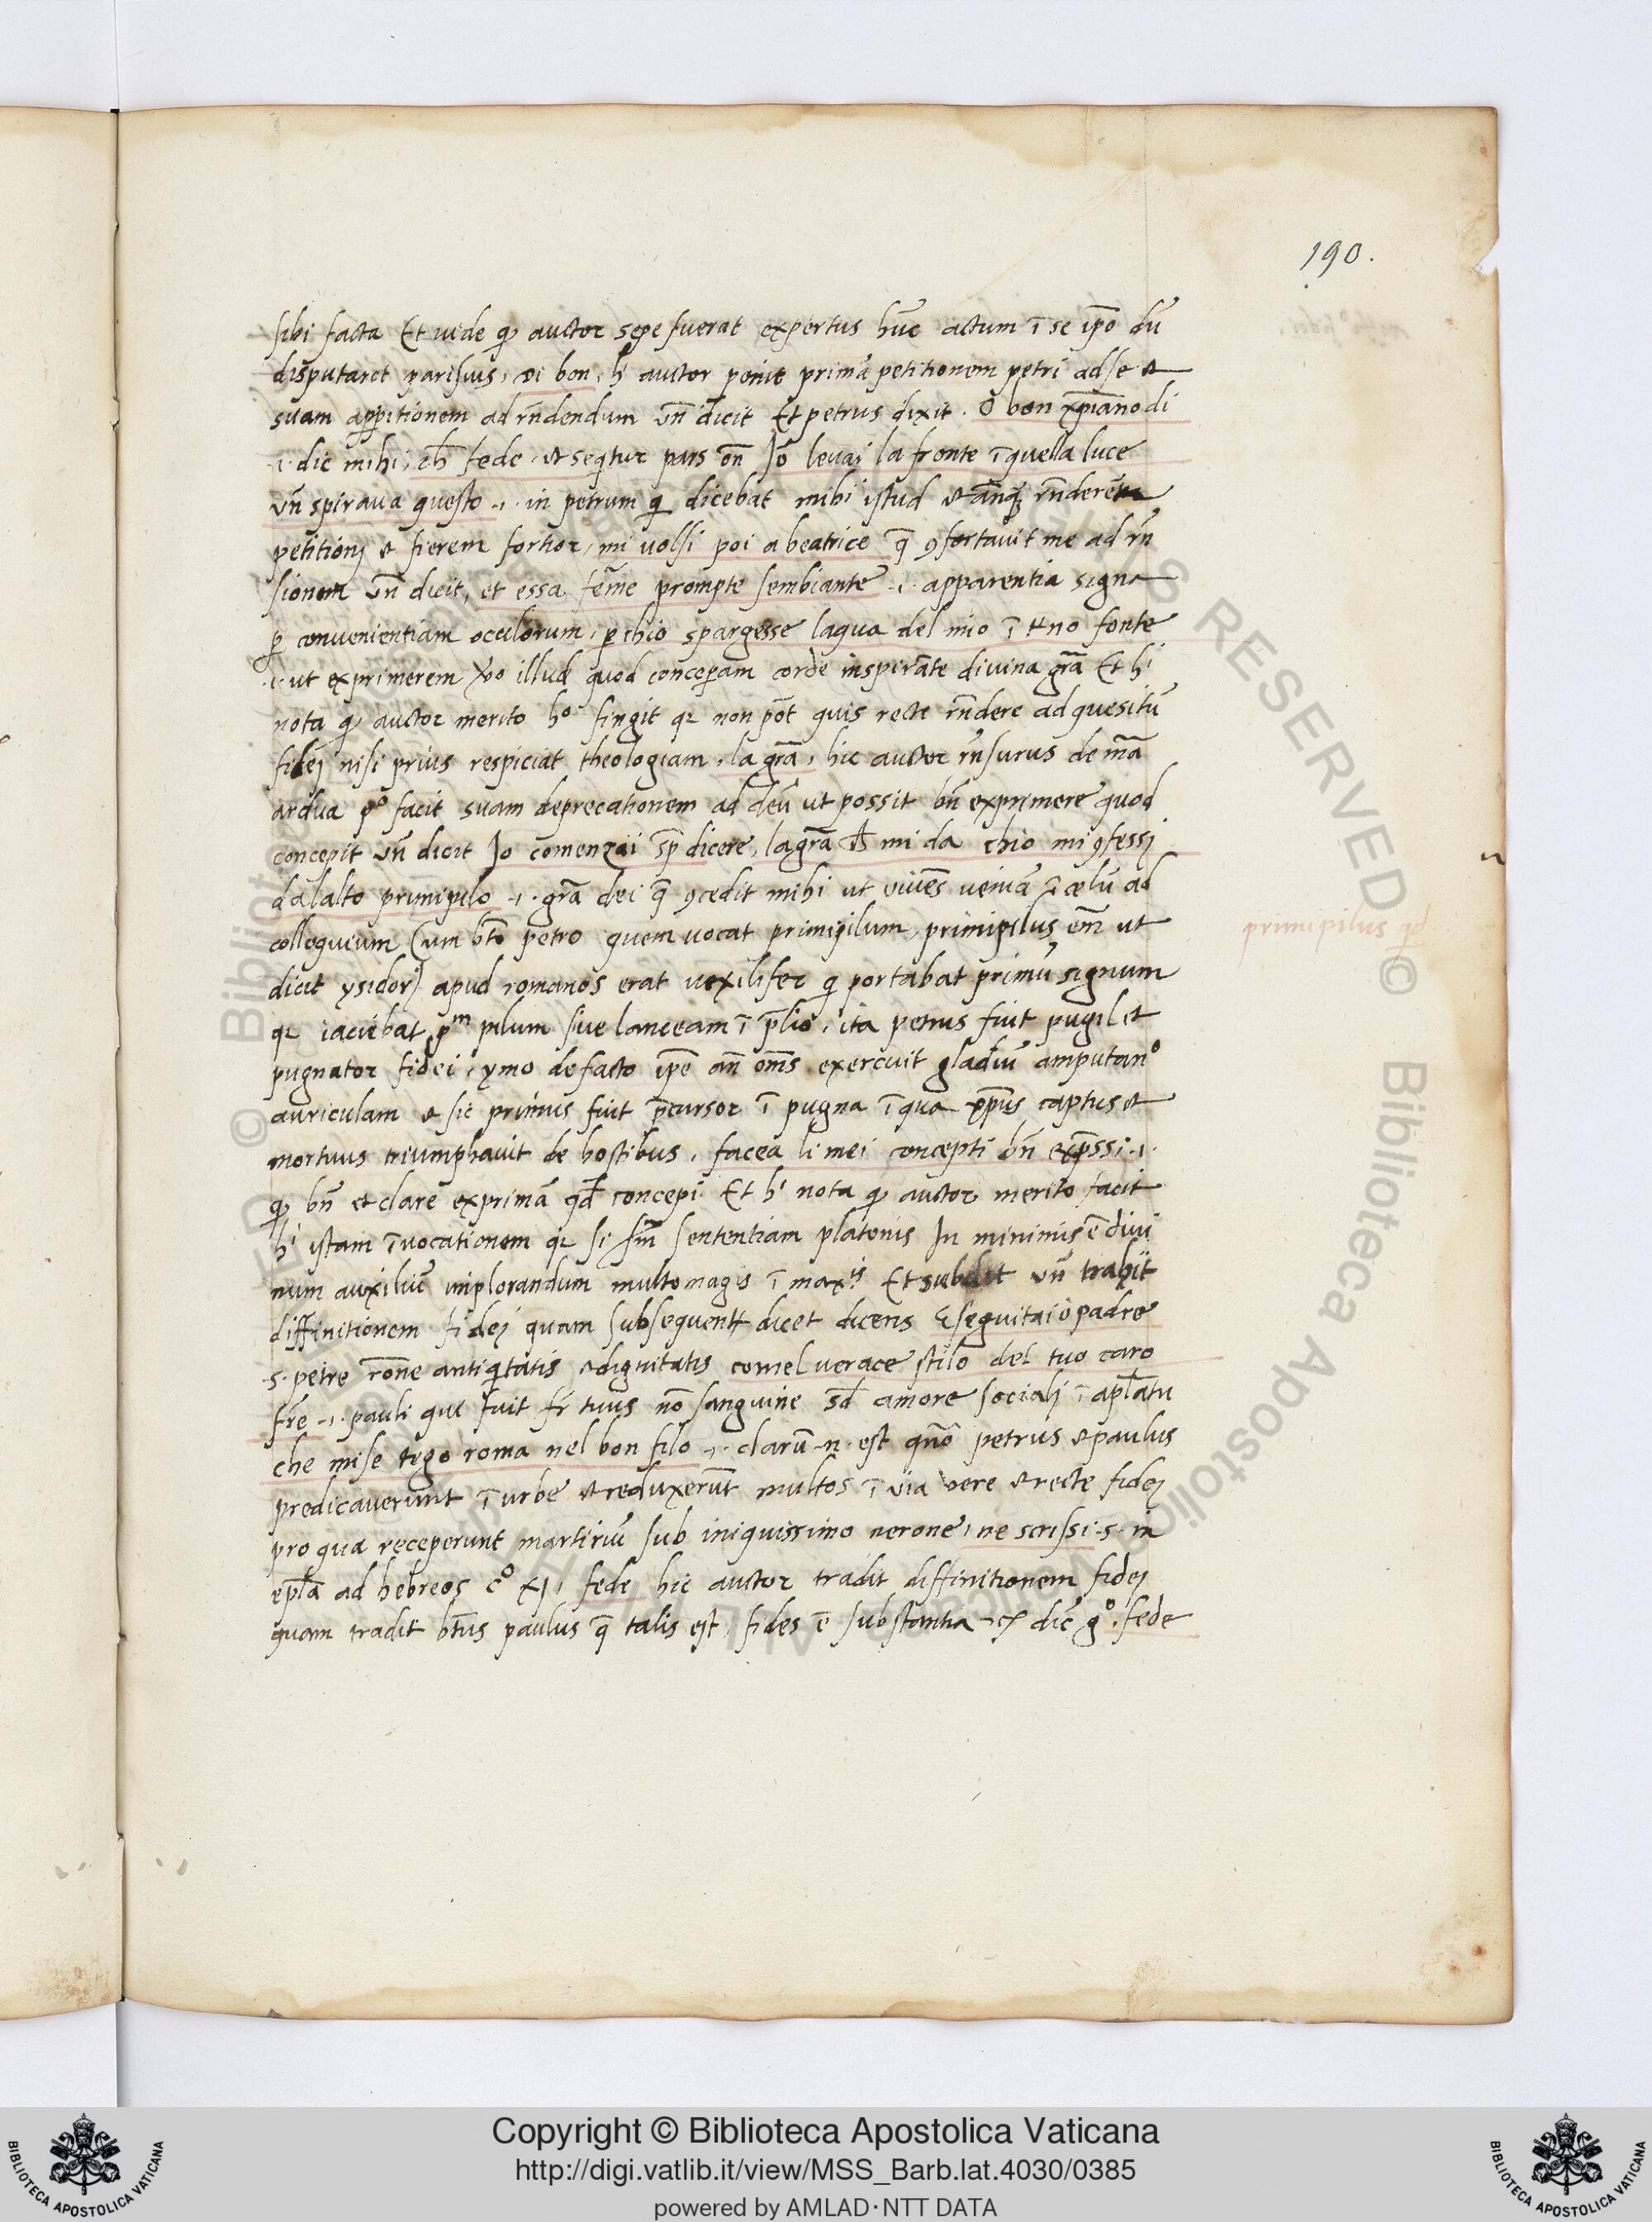 190.
sibi facta Et vide qꝫ auctor sepe fuerat expertus hūc actum ī se ip̄o dū
disputaret parisius, di bon, hⁱ auctor ponit primā petitionem petri ad se et
suam appitionem ad rn̄dendum vn̄ dicit Et petrus dixit. O bon xp̄iano di
.i. dic mihi, ch̄ fede et seqitur pars on̄ Jo levai la fronte ī quella luce
vn̄ spirava questo .i. in petrum qi dicebat mihi istud et ānqꝫ rn̄derē
petitioni et fierem fortior, mi volsi poi a beatrice q̄ ꝯfortavit me ad rn̄
sionem vn̄ dicit, et essa femē prompte sembiante .i. apparentia signa
ꝑ convenientiam oculorum, ꝑchio spargesse laqua del mio ī t̄no fonte
.i. ut exprimerem v̄bo illud quod conceperam corde insperāte divina grā Et hⁱ
nota qꝫ auctor merito hº fingit qr non pōt quis recte rn̄dere ad quesitū
fidei nisi prius respiciat theologiam, la grā, hic auctor rn̄surus de mā
ardua pº facit suam deprecationem ad deū ut possit bn̄ exprimere quod
concepit vn̄ dicit Jo comenzai sp̄ dicere, la grā ch̄ mi da chio mi ꝯfessi
dalalto primipilo .i. grā dei q̄ ꝯcedit mihi ut vivēs veniā ī celū ad
colloquium Cum bt̄o petro quem vocat primipilum, primipilus em̄ ut
dicit ysidorꝰ apud romanos erat vexilifer qi portabat primū signum
primipilus qd
qr iaciebat pᵐ pilum sive lanceam ī p̄lio, ita petrus fuit pugil et
pugnator fidei, ymo de facto ip̄e an̄ om̄s exercuit gladiū amputanº
auriculam et sic primus fuit p̄cursor ī pugna ī qua xp̄us captus et
mortuus triumphavit de hostibus, facea li mei concepti bn̄ exp̄ssi .i.
qꝫ bn̄ et clare exprimā qd̄ concepi Et hⁱ nota qꝫ auctor merito facit
hⁱ istam īvocationem qr si sm̄ sententiam platonis In minimis ē divi
num auxiliū implorandum multo magis ī maxⁱˢ Et subdit vn̄ trahit
diffinitionem fidei quam subsequentr dicet dicens E seguitai o padre
.s. petre rōne antiqitatis et dignitatis comel verace stilo del tuo caro
fr̄e .i. pauli qui fuit fr̄ tuus nō sanguine sd̄ amore sociali ī apl̄atu
che mise tego roma nel bon filo .i. clarū .n. est qn̄o petrus et paulus
predicaverunt ī urbe et reduxerūt multos ī via vere et recte fidei
pro qua receperunt martiriū sub iniquissimo nerone, ne scrissi .s. in
epl̄a ad hebreos cº xi, fede hic auctor tradit diffinitionem fidei
quam tradit bt̄us paulus q̄ talis est, fides ē substantia dic̄ gº. fede
Copyright © Biblioteca Apostolica Vaticana
http://digi.vatlib.it/view/MSS_Barb.lat.4030/0385
powered by AMLAD·NTT DATA
BIBLIOTECA APOSTOLICA VATICANA
BIBLIOTECA APOSTOLICA VATICANA